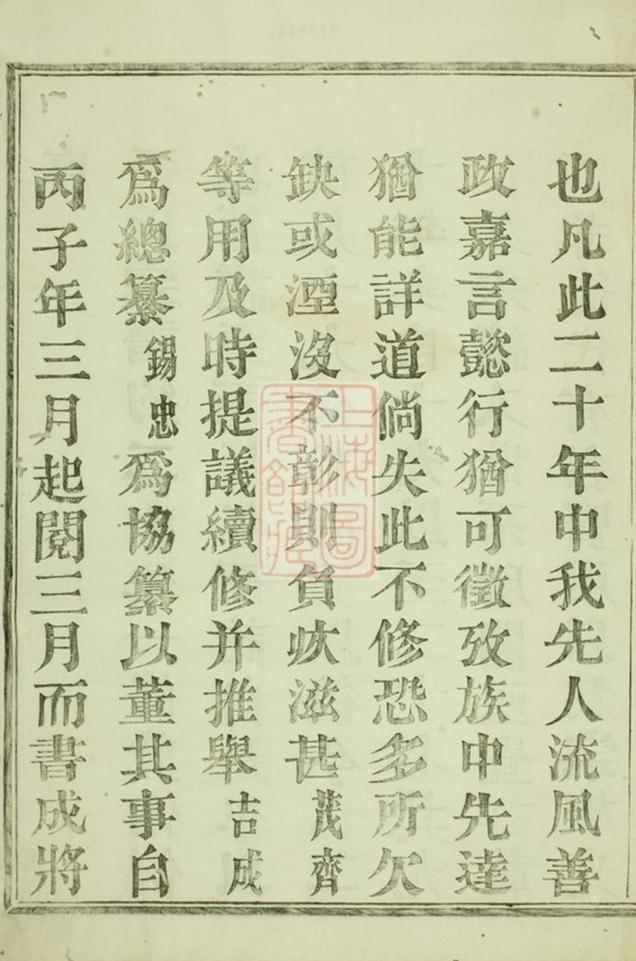 也凡此二十年中我先人流風善
政嘉言懿行猶可徵攷族中先達
猶能詳道倘失此不修恐多所欠
缺或湮沒不彰則負疚滋甚茂齊
等用及時提議續修并推舉吉成
爲總纂錫忠爲協纂以董其事自
丙子年三月起閱三月而書成將
上海圖書館藏